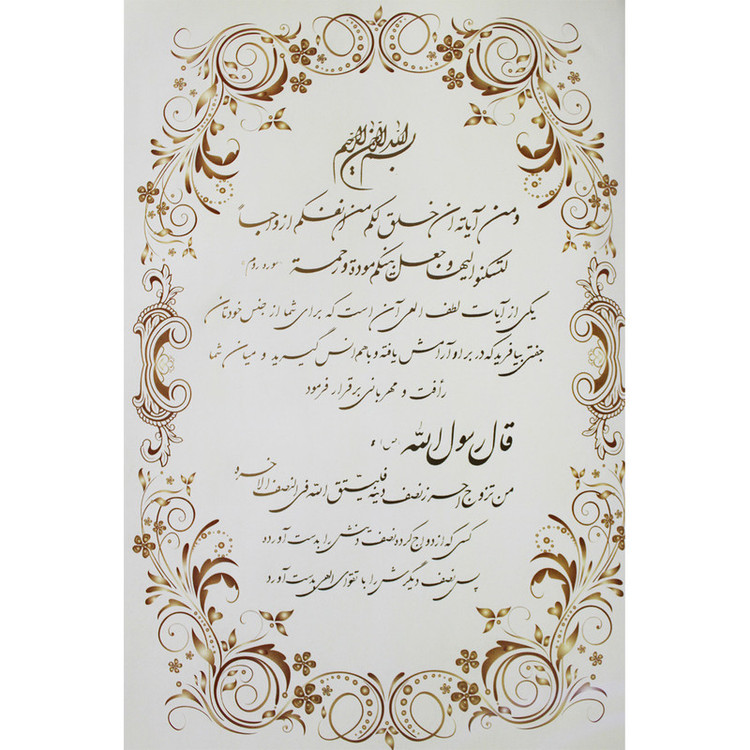 بسم الله الرحمن الرحیم
ومن آیاته ان خلق لکم من انفسکم ازواجاً
لتسکنوا الیها و جعل بینکم مودة و رحمة «سوره روم»
یکی از آیات لطف الهی آن است که برای شما از جنس خودتان
جفتی بیافرید که در بر او آرامش یافته و با هم انس گیرید و میان شما
رأفت و مهربانی برقرار فرمود
قال رسول الله (ص)
من تزوج احرز نصف دینه فلیتق الله فی النصف الاخر
کسی که ازدواج کرده نصف دینش را بدست آورد
پس نصف دیگرش را با تقوای الهی بدست آورد